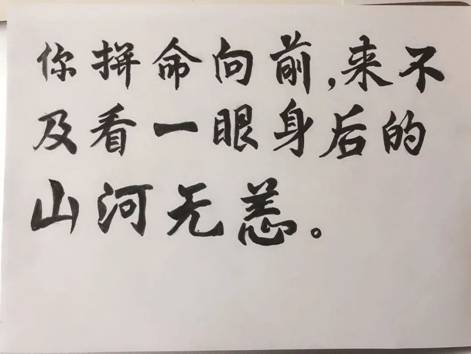 你拼命向前,来不
及看一眼身后的
山河无恙。